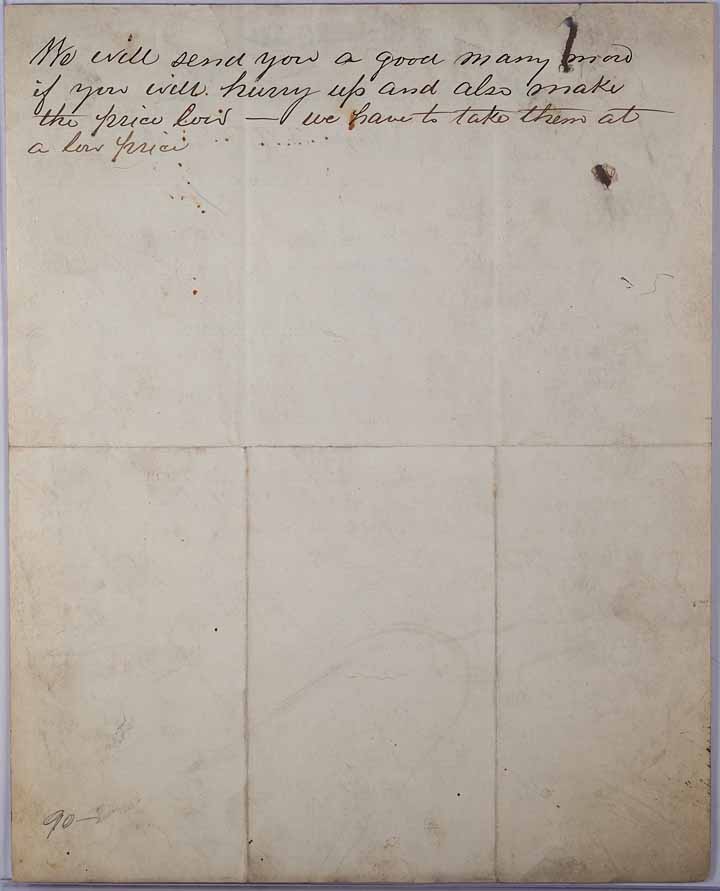 We will send you a good many more
if you will hurry up and also make
the price low — we have to take them at
a low price
90-